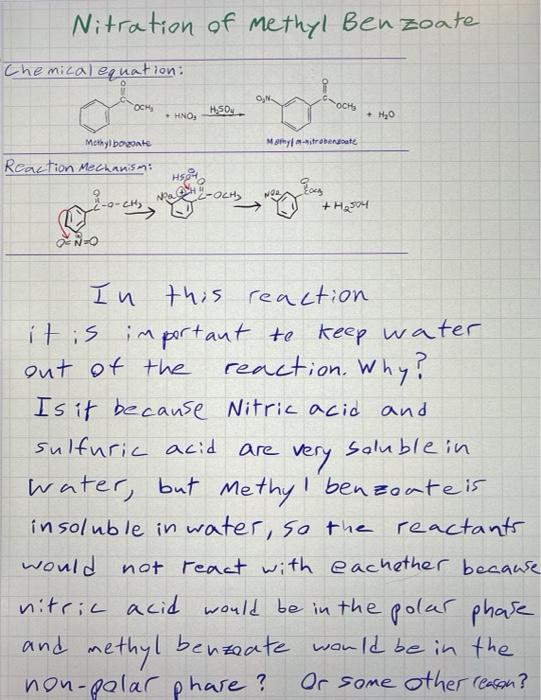 Nitration of Methyl Benzoate
Chemical equation:
O
C
OCH3 + HNO3 H2SO4 O2N C OCH3 + H2O
Methyl benzoate Methyl m-nitrobenzoate
Reaction Mechanism:
HSO4
O C-O-CH3 NO2 H C-OCH3 NO2 + H2SO4
O=N=O
In this reaction
it is important to keep water
out of the reaction. Why?
Is it because Nitric acid and
sulfuric acid are very soluble in
water, but Methyl benzoate is
insoluble in water, so the reactants
would not react with eachother because
nitric acid would be in the polar phase
and methyl benzoate would be in the
non-polar phase? Or some other reason?